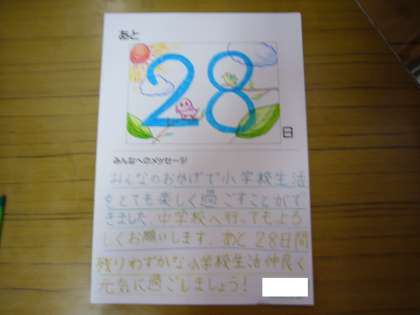 あと
28
日
みんなへのメッセージ
みんなのおかげで小学校生活
をとても楽しく過ごすことがで
きました。中学校へ行ってもよろ
しくお願いします。あと28日間
残りわずかな小学校生活仲良く
元気に過ごしましょう!